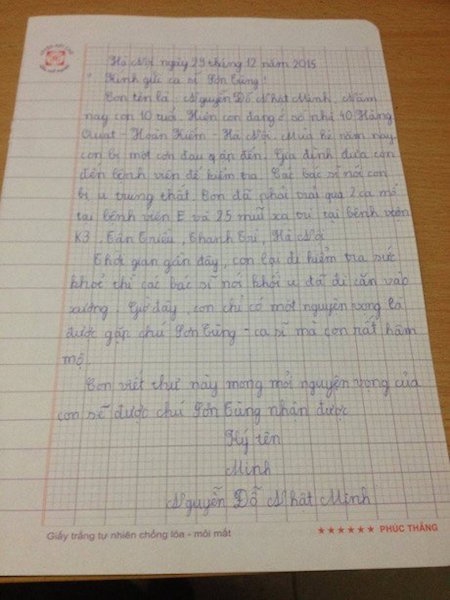 Hà Nội ngày 29 tháng 12 năm 2015
Kính gửi ca sĩ Sơn Tùng!
Con tên là: Nguyễn Đỗ Nhật Minh. Năm
nay con 10 tuổi. Hiện con đang ở số nhà 40 Hàng
Quạt - Hoàn Kiếm - Hà Nội. Mùa hè năm nay
con bị một cơn đau quặn đến. Gia đình đưa con
đến bệnh viện để kiểm tra. Các bác sĩ nói con
bị u trung thất. Con đã phải trải qua 2 ca mổ
tại bệnh viện E và 25 mũi xạ trị tại bệnh viện
K3, Tân Triều, Thanh Trì, Hà Nội
Thời gian gần đây, con lại đi kiểm tra sức
khoẻ thì các bác sĩ nói khối u đã di căn vào
xương. Giờ đây, con chỉ có một nguyện vọng là
được gặp chú Sơn Tùng - ca sĩ mà con rất hâm
mộ.
Con viết thư này mong mỏi nguyện vọng của
con sẽ được chú Sơn Tùng nhận được
Ký tên
Minh
Nguyễn Đỗ Nhật Minh
Giấy trắng tự nhiên chống lóa - mỏi mắt
★★★★★★ PHÚC THẮNG